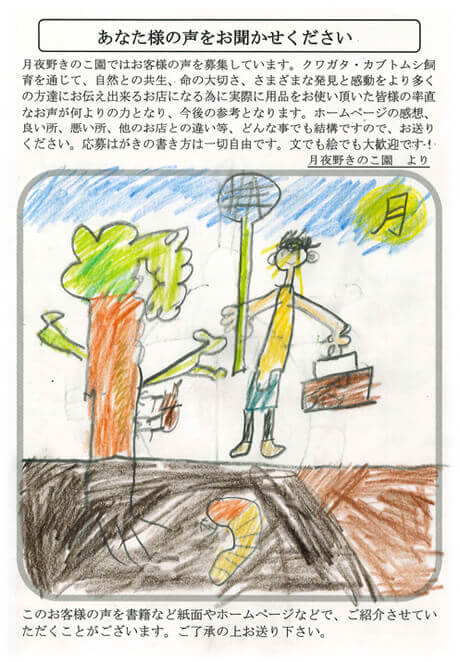 あなた様の声をお聞かせください
月夜野きのこ園ではお客様の声を募集しています。クワガタ・カブトムシ飼
育を通じて、自然との共生、命の大切さ、さまざまな発見と感動をより多く
の方達にお伝え出来るお店になる為に実際に用品をお使い頂いた皆様の率直
なお声が何よりの力となり、今後の参考となります。ホームページの感想、
良い所、悪い所、他のお店との違い等、どんな事でも結構ですので、お送り
ください。応募はがきの書き方は一切自由です。文でも絵でも大歓迎です！
月夜野きのこ園　より
月
このお客様の声を書籍など紙面やホームページなどで、ご紹介させてい
ただくことがございます。ご了承の上お送り下さい。